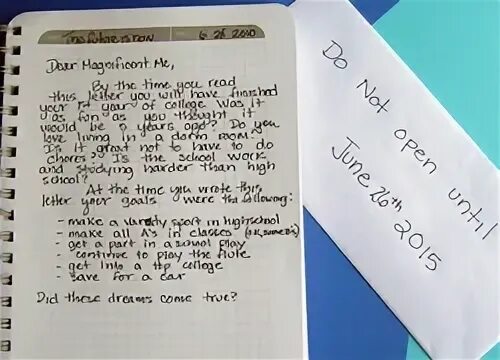 The future is now 6 26 2010
Dear Magnificent Me,
By the time you read
this letter you will have finished
your 1st year of college. Was it
as fun as you thought it
would be 5 years ago? Do you
love living in a dorm room?
Is it great not to have to do
chores? Is the school work
and studying harder than high
school?
At the time you wrote this
letter your goals were the following:
- make a varsity sport in highschool
- make all A's in classes (o.k, some B's)
- get a part in a school play
- continue to play the flute
- get into a top college
- save for a car
Did these dreams come true?
Do Not open until
June 26th 2015